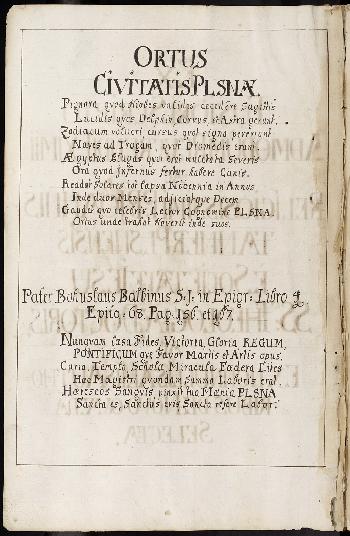 ORTUS
CIVITATIS PLSNÆ.
Pignora quod Niobes validis cecidere Sagittis
Lucidis quos Delphin, Corvus, et Astra gerunt.
Zodiacum volucri cursus quot signa pererrant
Naves ad Trojam, quot Diomedis erant.
Ægyptus Plagas quot erat
Ora quod Infernus fertur habere Canis.
Readat Solares tot lapsa in Annos
Inde duos Menses, adjiciatque Decem
Gaudet quo celebris Lector Cognomine PLSNA.
Ortus unde trahat noverit inde suos.
Pater Bohuslaus Balbinus S.J. in Epigr. Libro
Epito. 63. Pag. 156. et 157.
Nunquam Casa, Fides, Victoria, Gloria REGUM,
PONTIFICUM que Favor Martis et Artis opus.
Curia, Templa, Scholæ, Miracula, Fædera, Lites
Hæc Magistri quondam summa Laboris erat
Hæreseos Sanguis pinxit tua Mænia PLSNA
Sancta es, Sanctus eris Sancta refere Labor.